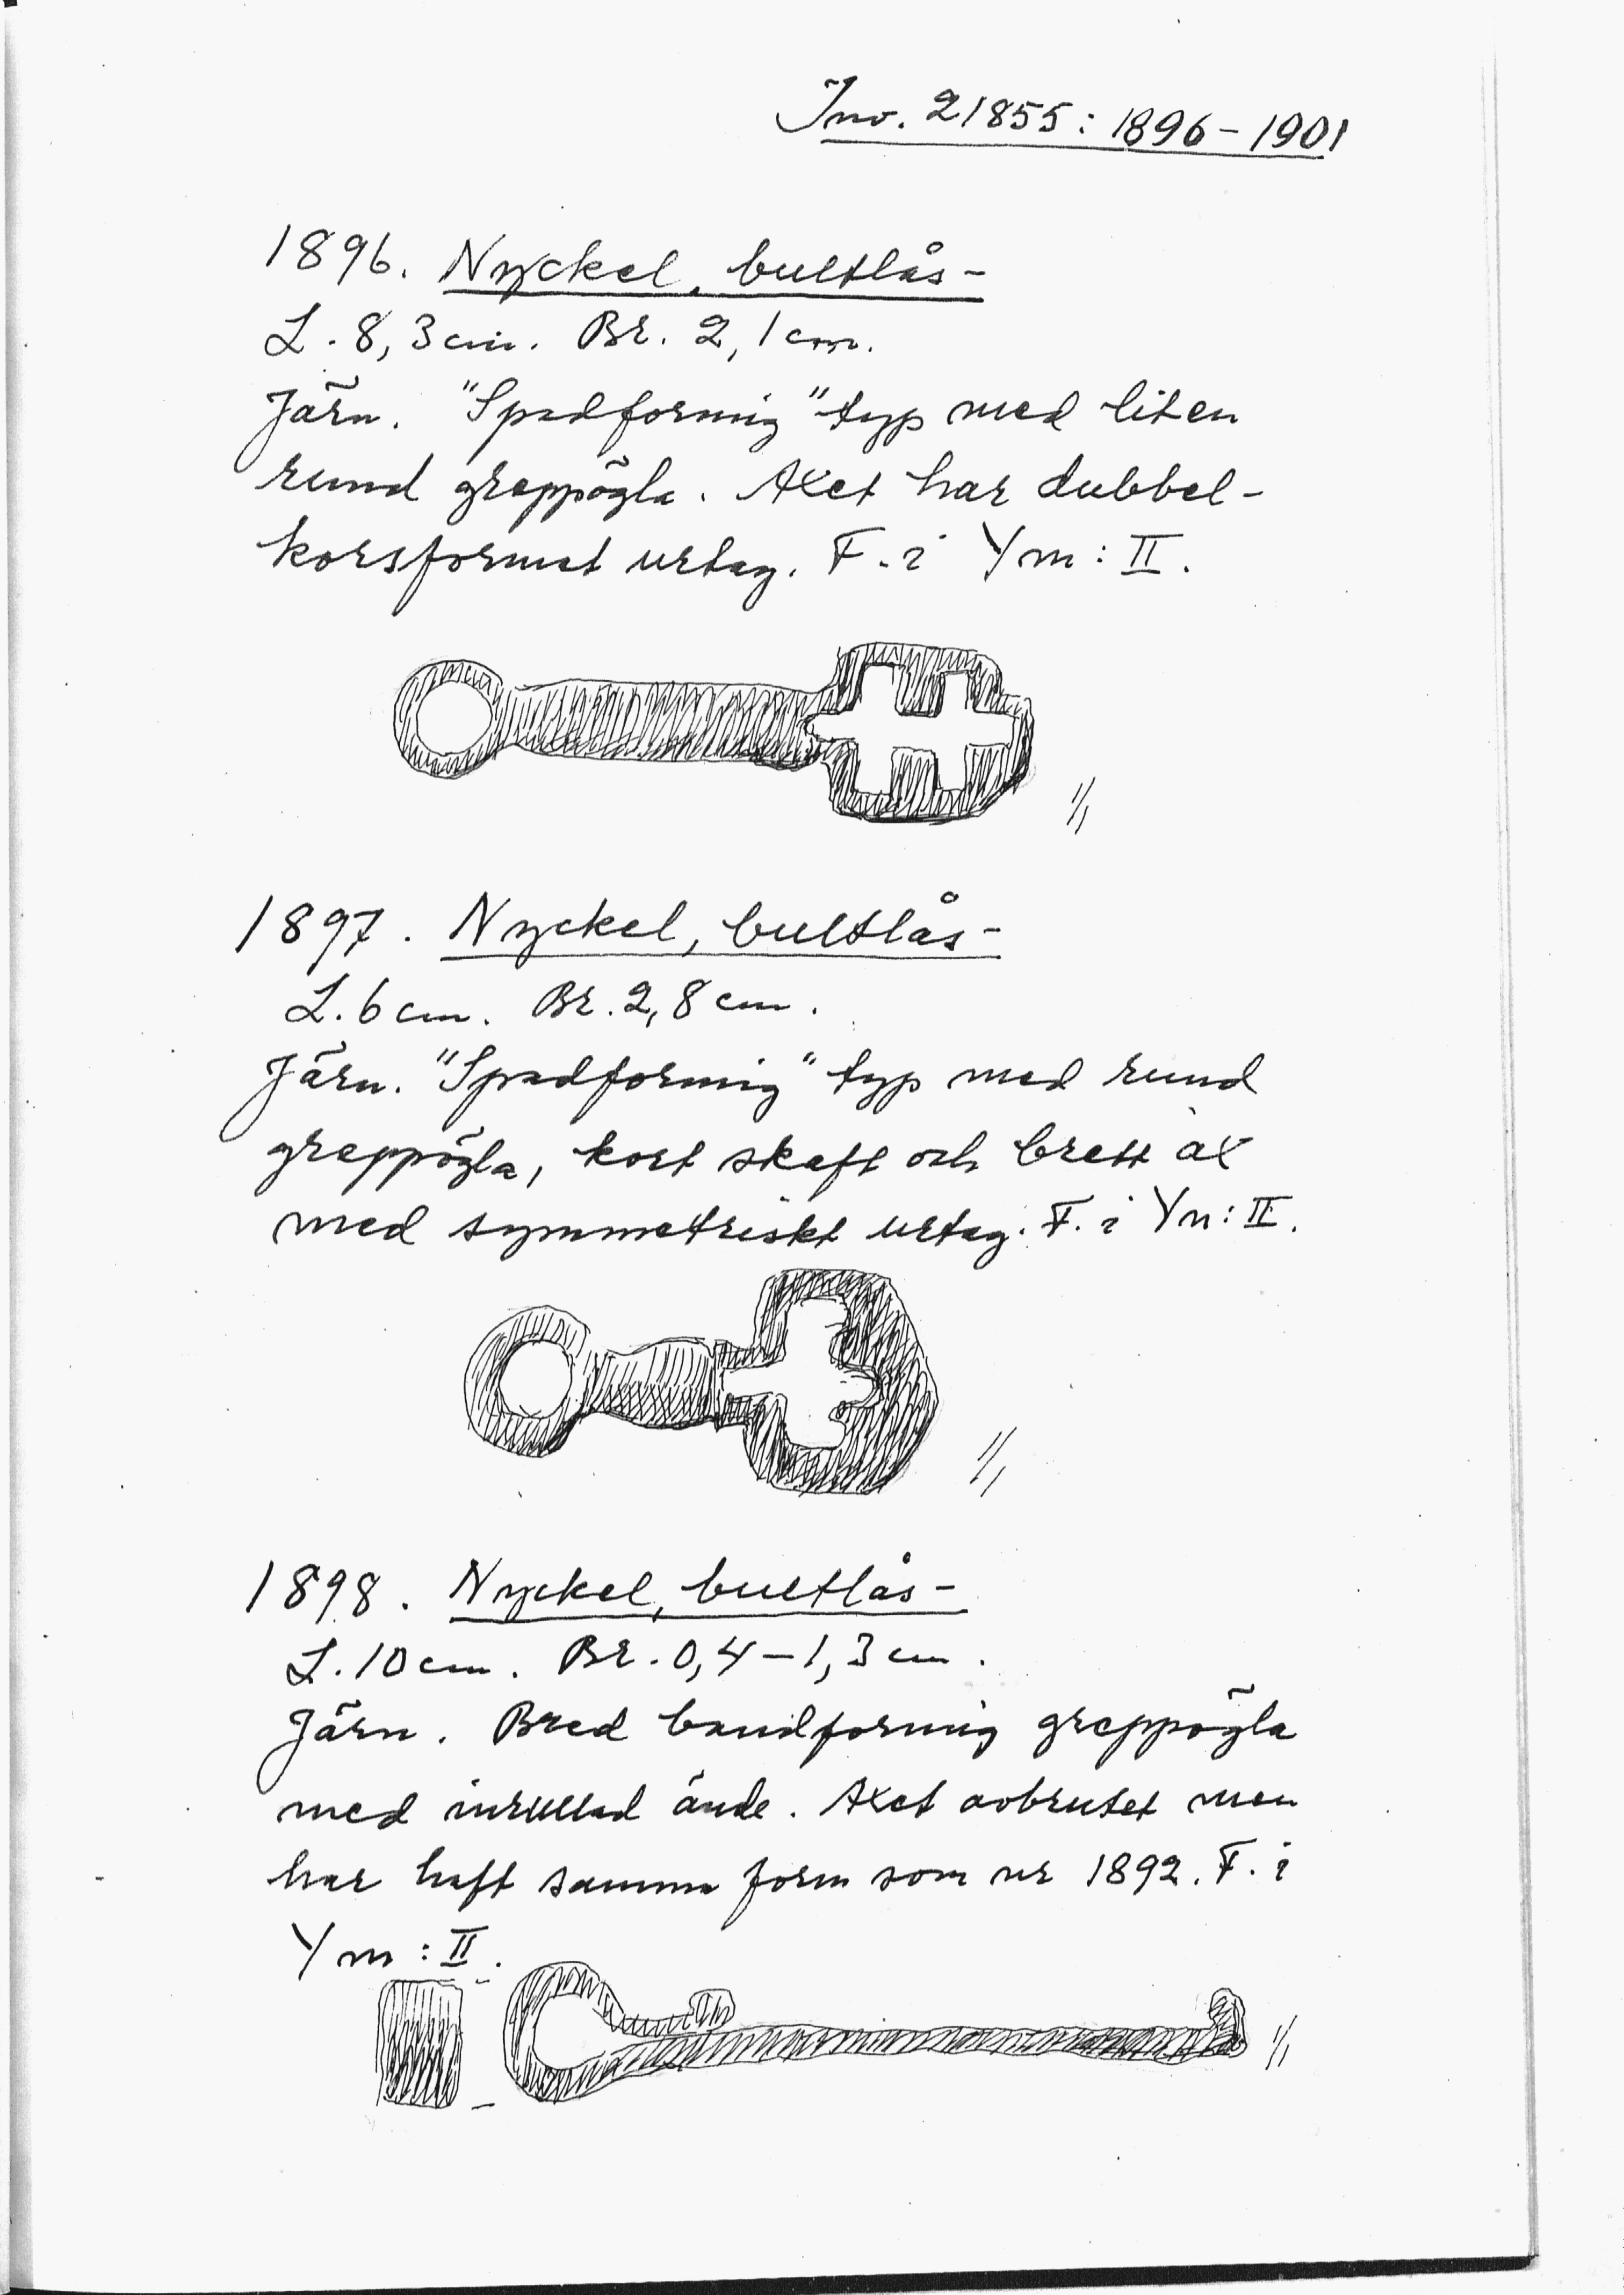 Inv. 21855: 1896-1901
1896. Nyckel, bultlås-
L. 8,3cm. Br. 2,1cm.
Järn. "Spadformig" typ med liten
rund greppögla. Axet har dubbel-
korsformat urtag. F. i Ym: II.
1/1
1897. Nyckel, bultlås-
L. 6cm. Br. 2,8cm.
Järn. "Spadformig" typ med rund
greppögla, kort skaft och brett ax
med symmetriskt urtag. F. i Yn: II.
1/1
1898. Nyckel, bultlås-
L. 10cm. Br. 0,4-1,3cm.
Järn. Bred bandformig greppögla
med inrullad ände. Axet avbrutet men
har haft samma form som nr 1892. F. i
Ym: II.
1/1